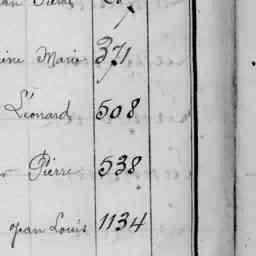 Marie 371
Léonard 508
Pierre 538
Jean Louis 1134